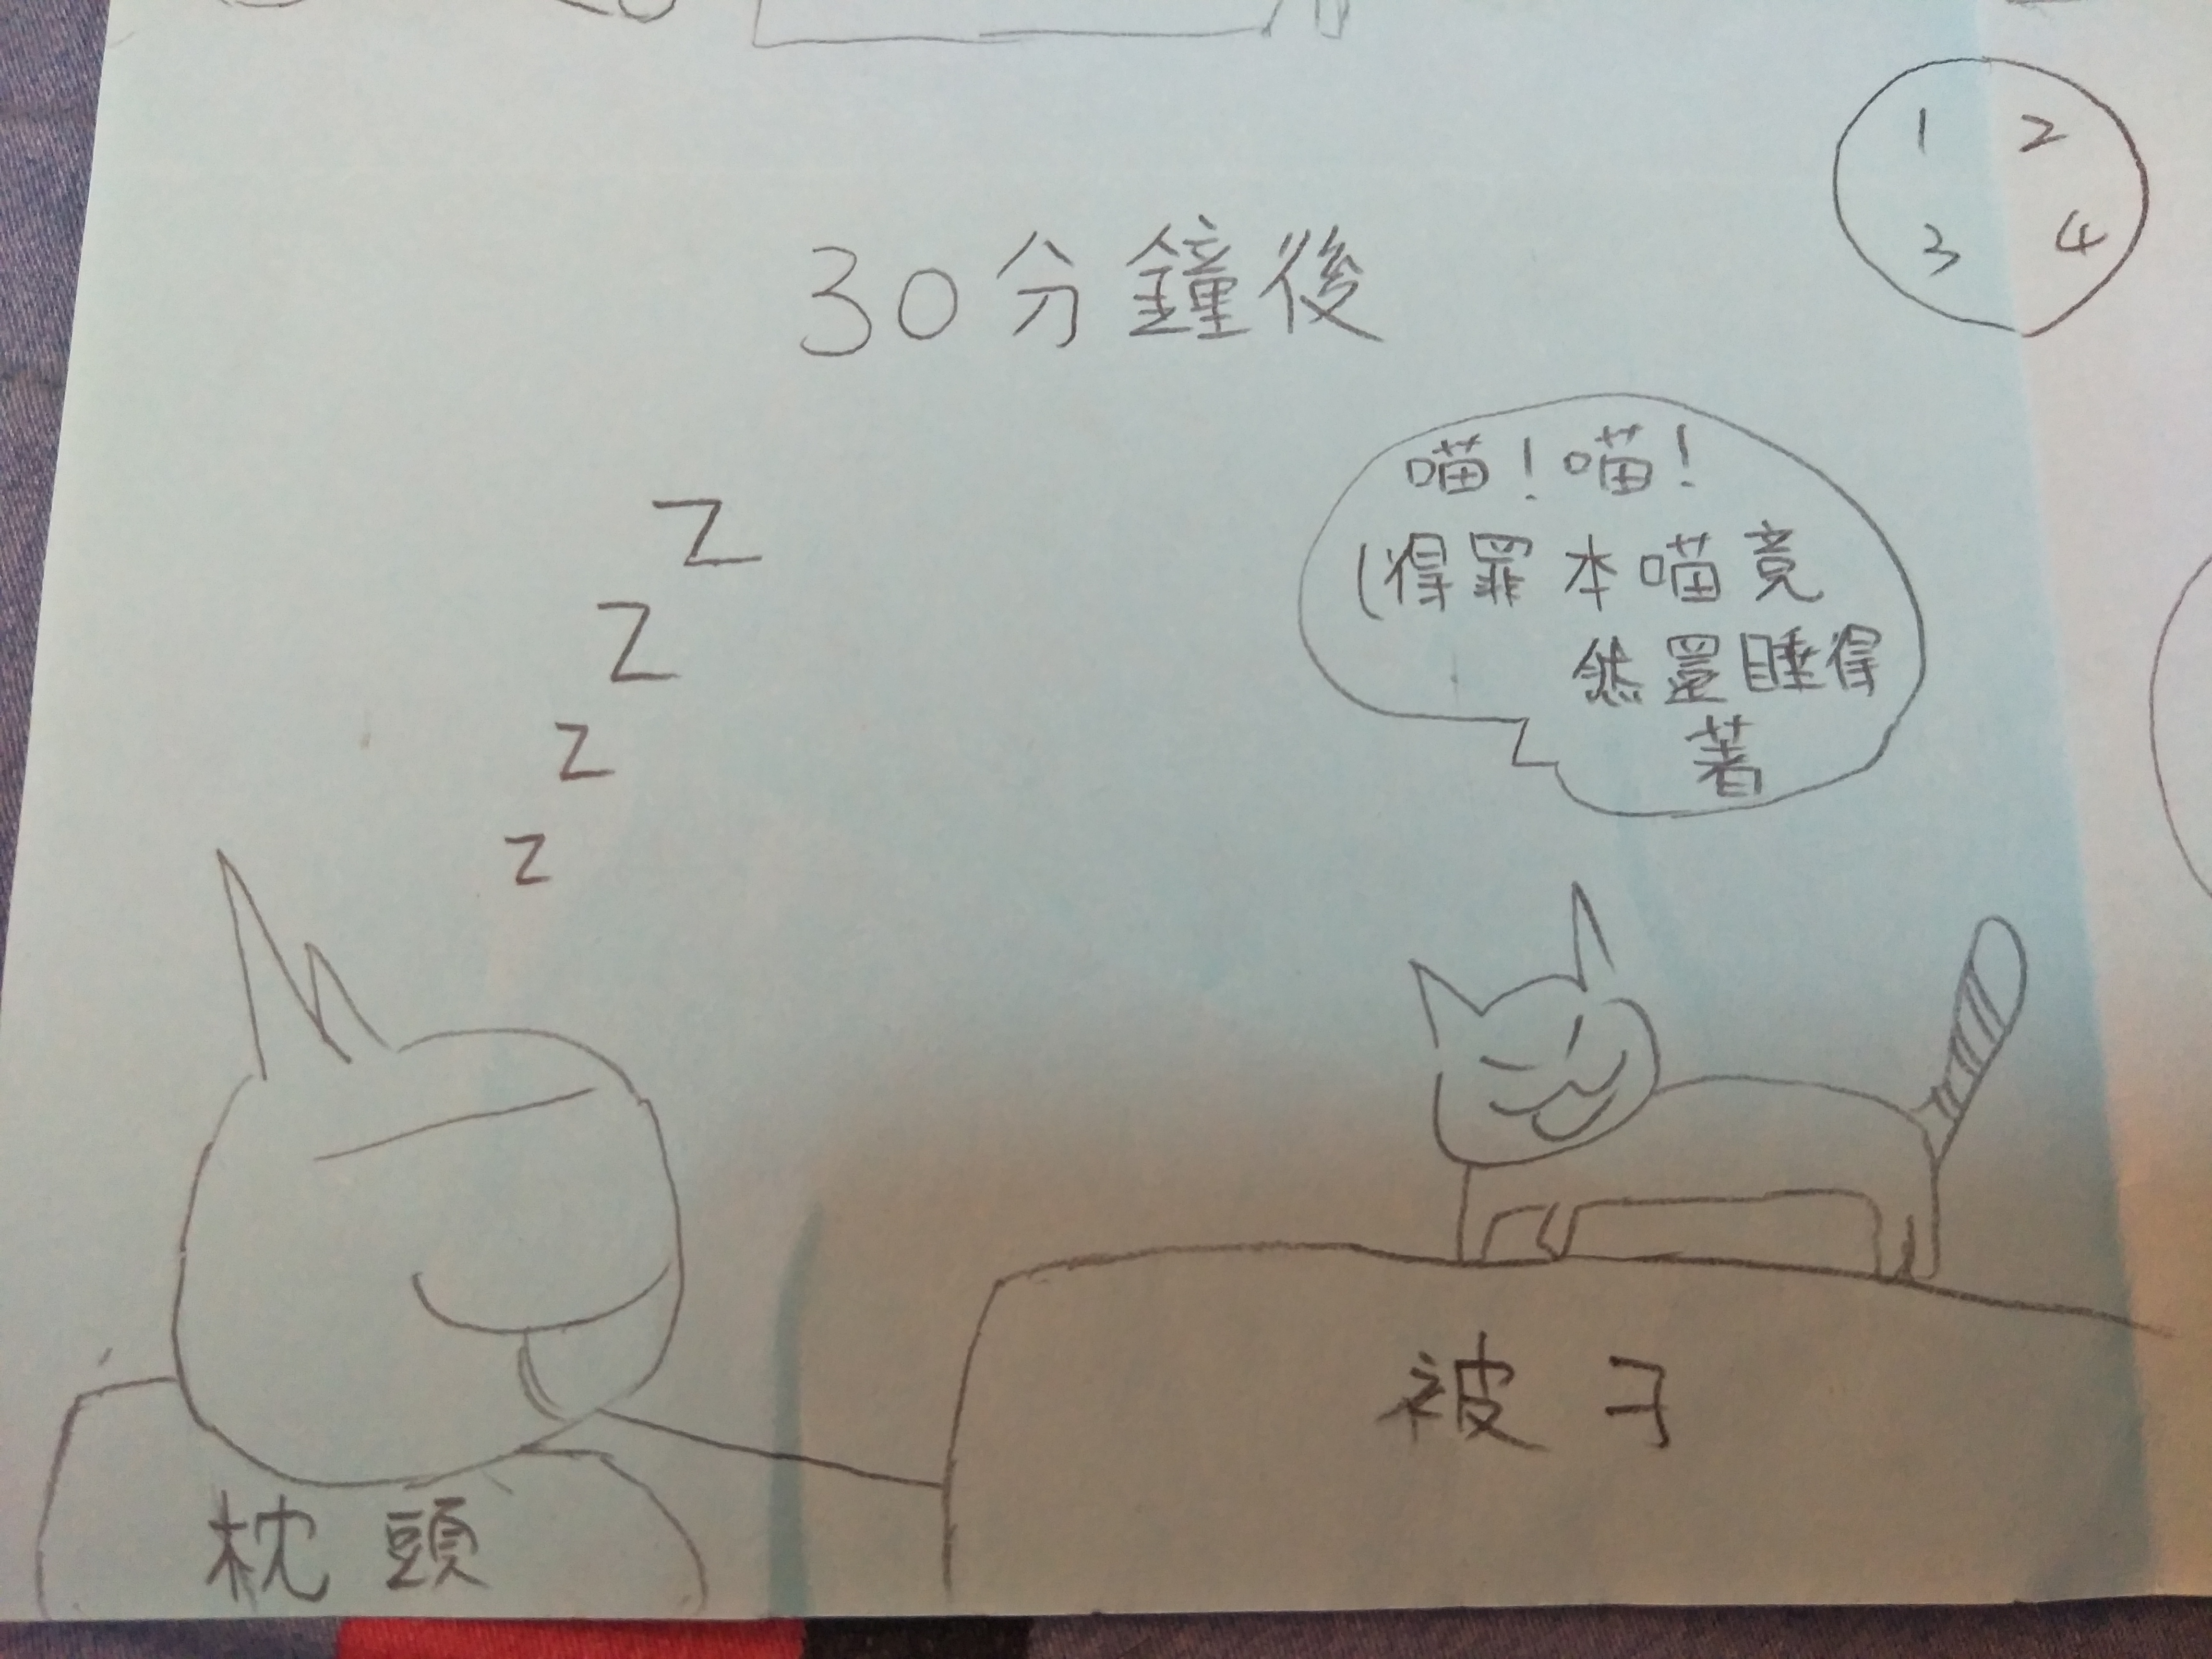 1 2
3 4
30分鐘後
喵!喵!
(得罪本喵竟
然還睡得
著
Z
Z
Z
Z
被子
枕頭